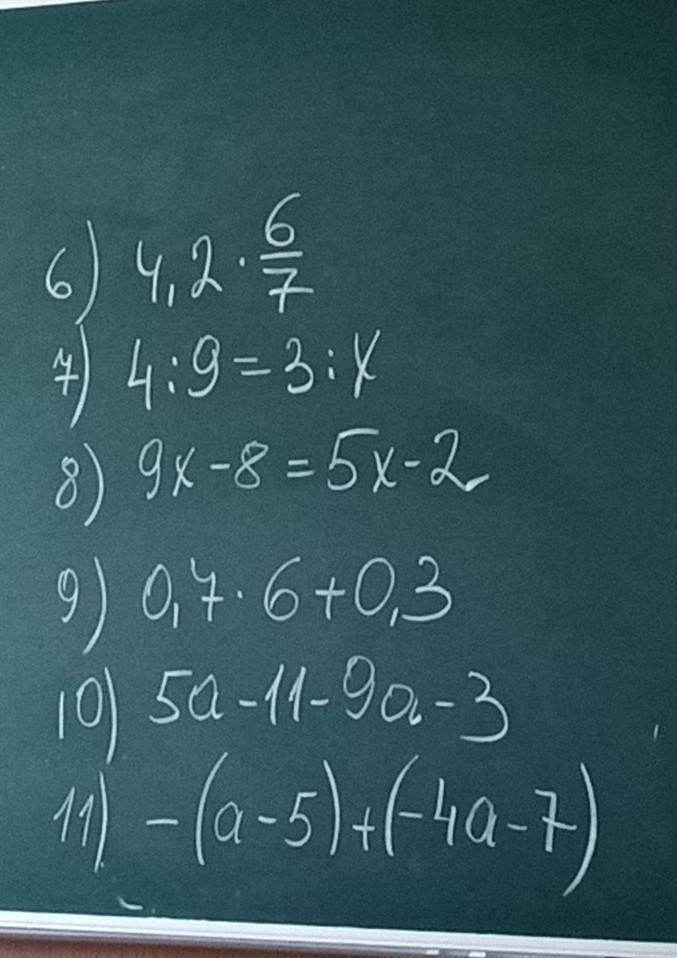 6) 4,2 · 6/7
7) 4:9=3:x
8) 9x-8=5x-2
9) 0,7·6+0,3
10) 5a-11-9a-3
11) -(a-5)+(-4a-7)